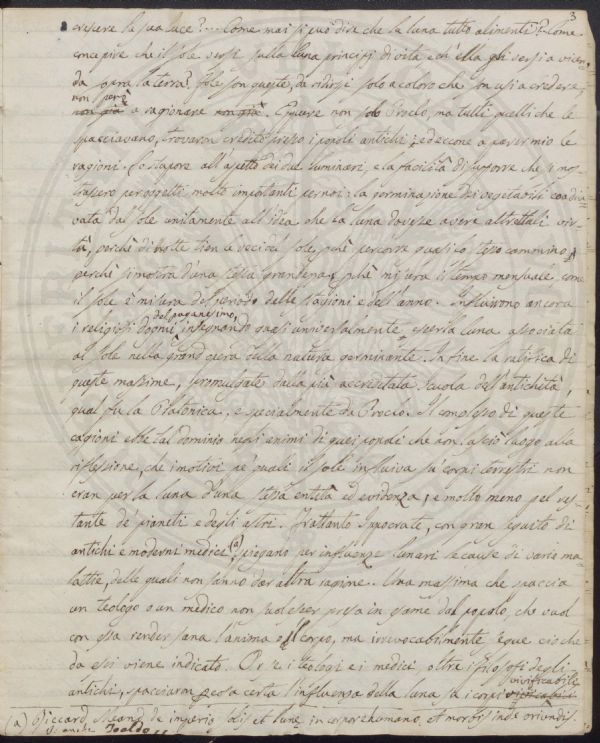 3
crescere la sua luce?.... Come mai si può dire che la luna tutto alimenti? Come
concepire che il sole versi sulla luna principj di vita, e ch'ella gli versi a vicen-
da sopra la terra? Fole son queste, da ridirsi solo a coloro che son usi a credere,
non però
non già a ragionare non già. Eppure non solo Proclo, ma tutti quelli che le
spacciavano, trovaron credito presso i popoli antichi; ed eccone a parer mio le
ragioni. Lo stupore all'aspetto dei due luminari, e la facilità di supporre che i mos-
trassero per oggetti molto importanti per noi: la germinazione dei vegetabili coadiu-
vata dal sole unitamente all'idea che la luna dovesse avere altrettali vir-
tù, perchè di notte tien le veci del sole, perchè percorre quasi lo stesso cammino,
perchè si mostra d'una stessa grandezza, perchè misura il tempo mensuale come
il sole è misura del periodo delle stagioni e dell'anno. Influirono ancora
del paganesimo,
i religiosi dogmi insegnando quasi universalmente essere la luna associata
al sole nella grand'opera della natura germinante. Infine la ratifica di
queste massime, promulgate dalla più accreditata scuola dell'antichità,
qual fu la Platonica, e specialmente da Proclo. Il complesso di queste
cagioni ebbe tal dominio negli animi di quei popoli che non lasciò luogo alla
riflessione, che i motivi pe' quali il sole influiva su' corpi terrestri non
eran per la luna d'una stessa entità ed evidenza, e molto meno pel res-
tante de' pianeti e degli astri. Frattanto Ippocrate, con gran seguito di
antichi e moderni medici (a), spiegano per influenze lunari le cause di varie ma-
lattie, delle quali non sanno dar altra ragione. Una massima che spaccia
un teologo o un medico non suol esser presa in esame dal popolo, che vuol
con essa render sana l'anima o il corpo, ma irrevocabilmente segue ciò che
da essi viene indicato. Or se i teologi e i medici, oltre i filosofi degli
vivificabile
antichi, spacciaron per cosa certa l'influenza della luna su i corpi vivificabili
(a) Riccard. Meand. de imperio solis et lunæ in corpore humano, et morbis inde oriundis.
Vi anche Toaldo